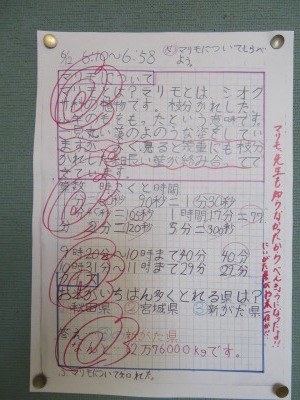 6/2 6:10～6:58 めマリモについてしらべよう。
マリモについて
マリモとは?マリモとは、シオク
の植物です。枝分かれした
糸のをもったという意味です。
見丸い藻のような姿をしてい
ますが、よく見ると幾重にも枝分
かれした細長い藻が絡み合ってで
きています。
算数 時こくと時間
1分=60秒 90秒=1分30秒
=120秒 1時間17分=77
分 2分=120秒 5分=300秒
9時20分～10時まで40分 40分
10時31分～11時まで29分 29分
お米がいちばん多くとれる県は?
①秋田県 ②宮城県 ③新がた県
答え 新がた県
62万76000kgです。
マリモについて知れた。
マリモ、先生も知らなかったからべんきょうになったよ!!
にいがた県がお米一位か!!